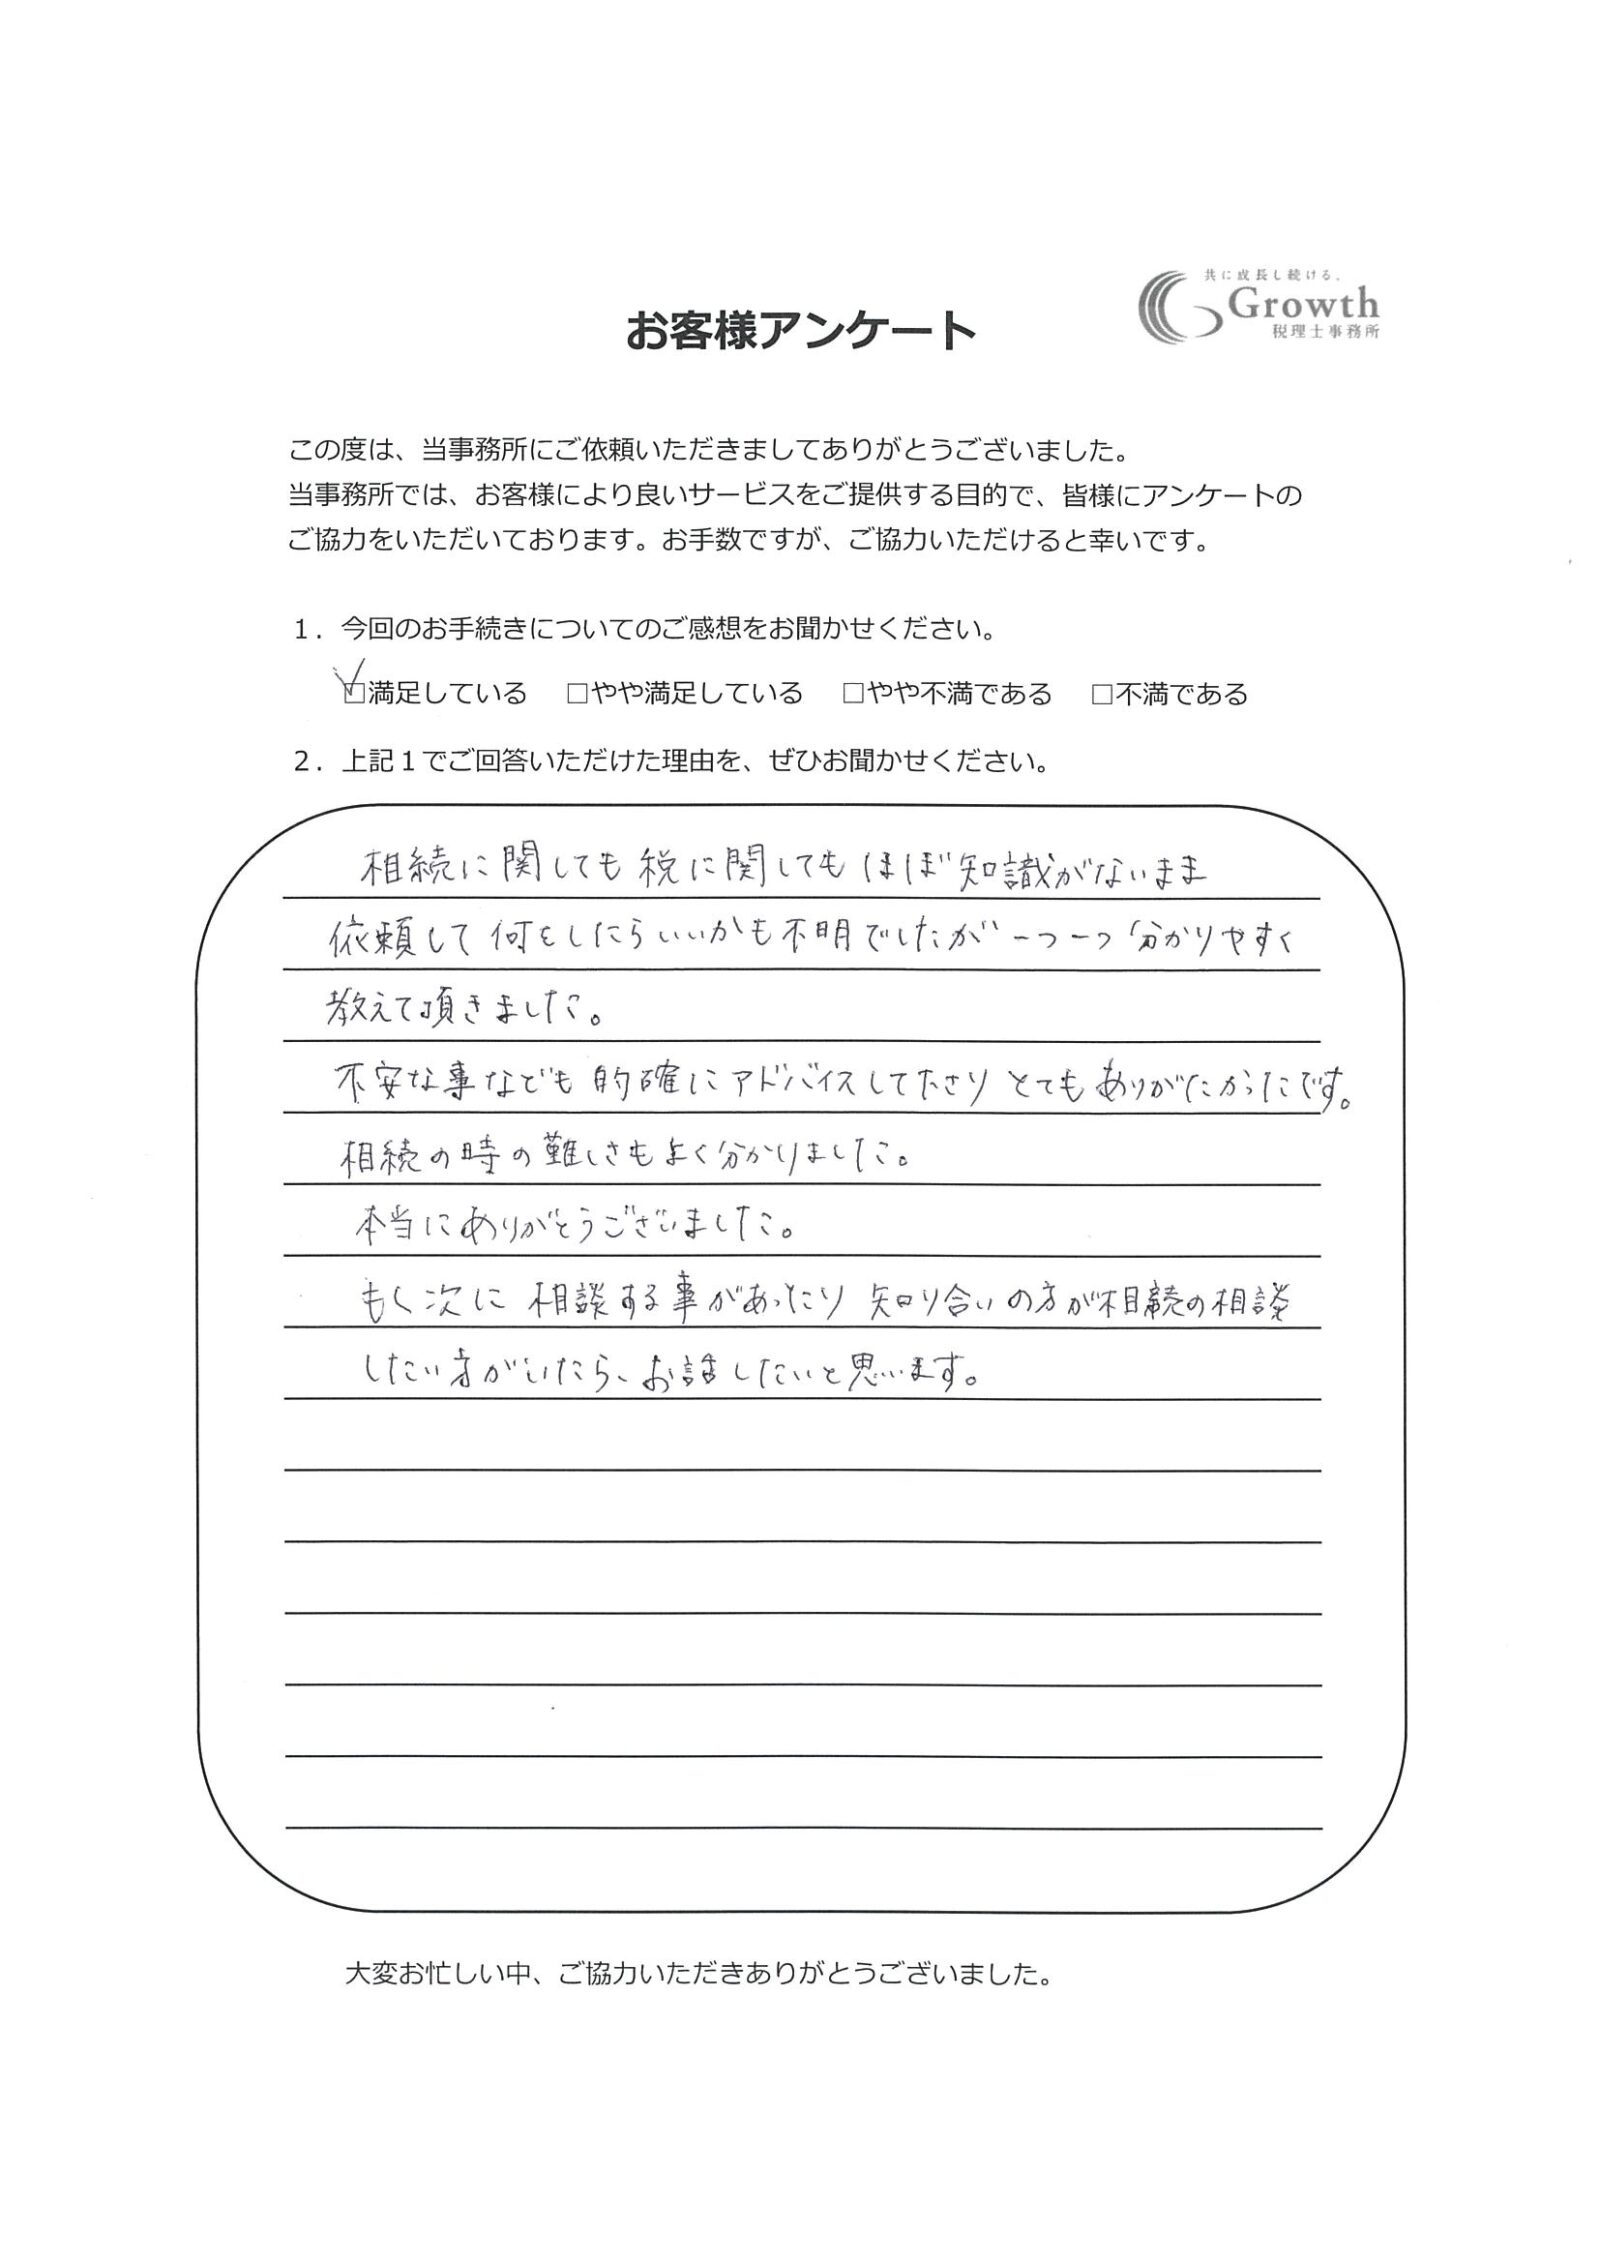 共に成長し続ける、
Growth
税理士事務所
お客様アンケート
この度は、当事務所にご依頼いただきましてありがとうございました。
当事務所では、お客様により良いサービスをご提供する目的で、皆様にアンケートの
ご協力をいただいております。お手数ですが、ご協力いただけると幸いです。
1．今回のお手続きについてのご感想をお聞かせください。
☑満足している　□やや満足している　□やや不満である　□不満である
2．上記１でご回答いただけた理由を、ぜひお聞かせください。
相続に関しても税に関してもほぼ知識がないまま
依頼して何をしたらいいかも不明でしたが一つ一つ分かりやすく
教えて頂きました。
不安な事なども的確にアドバイスして下さり とてもありがたかったです。
相続の時の難しさもよく分かりました。
本当にありがとうございました。
もし次に相談する事があったり 知り合いの方が相続の相談
したい方がいたら、お話したいと思います。
大変お忙しい中、ご協力いただきありがとうございました。